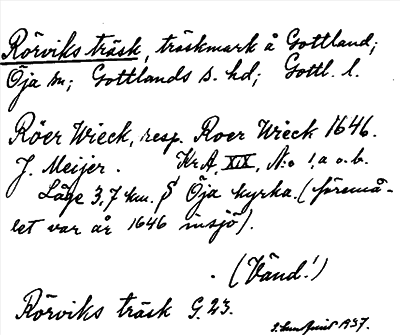 Rörviks träsk, träskmark å Gottland;
Öja sn; Gottlands s. hd; Gottl. l.
Röer Wieck, resp. Roer Wieck 1646.
J. Meijer. Kr.A, XIX, N:o 1, a o. b.
Läge 3,7 km. S Öja kyrka. (föremå-
let var år 1646 insjö).
(Vänd!)
Rörviks träsk G. 23.
1937.